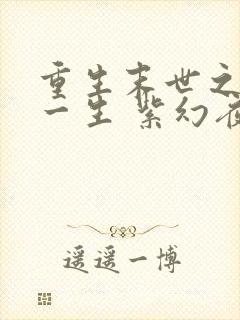 重生末世之
一生 紫幻
遥遥一博